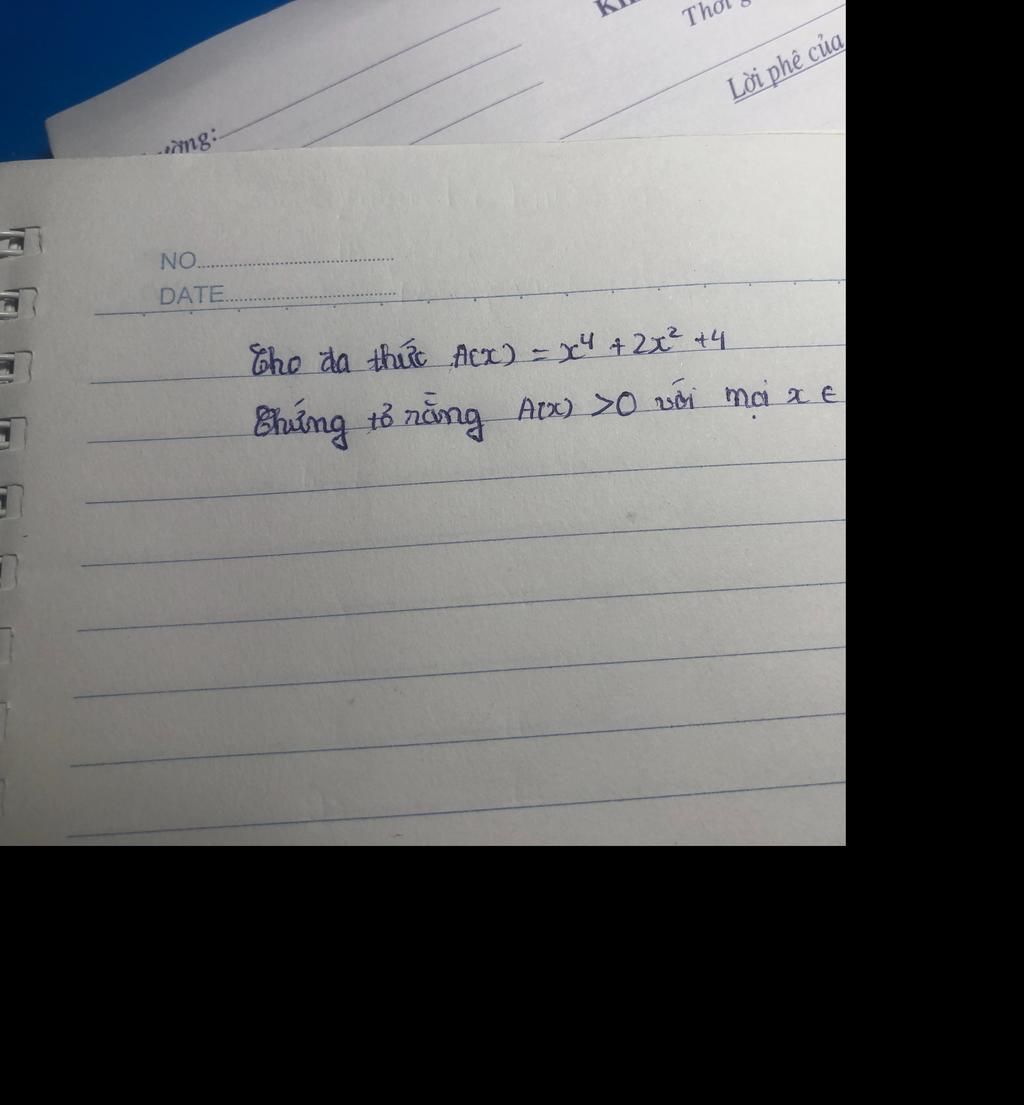 Thời g
Lời phê của
ường:
NO
DATE
Cho đa thức A(x) = x⁴ + 2x² + 4
Chứng tỏ rằng A(x) > 0 với mọi x ∈